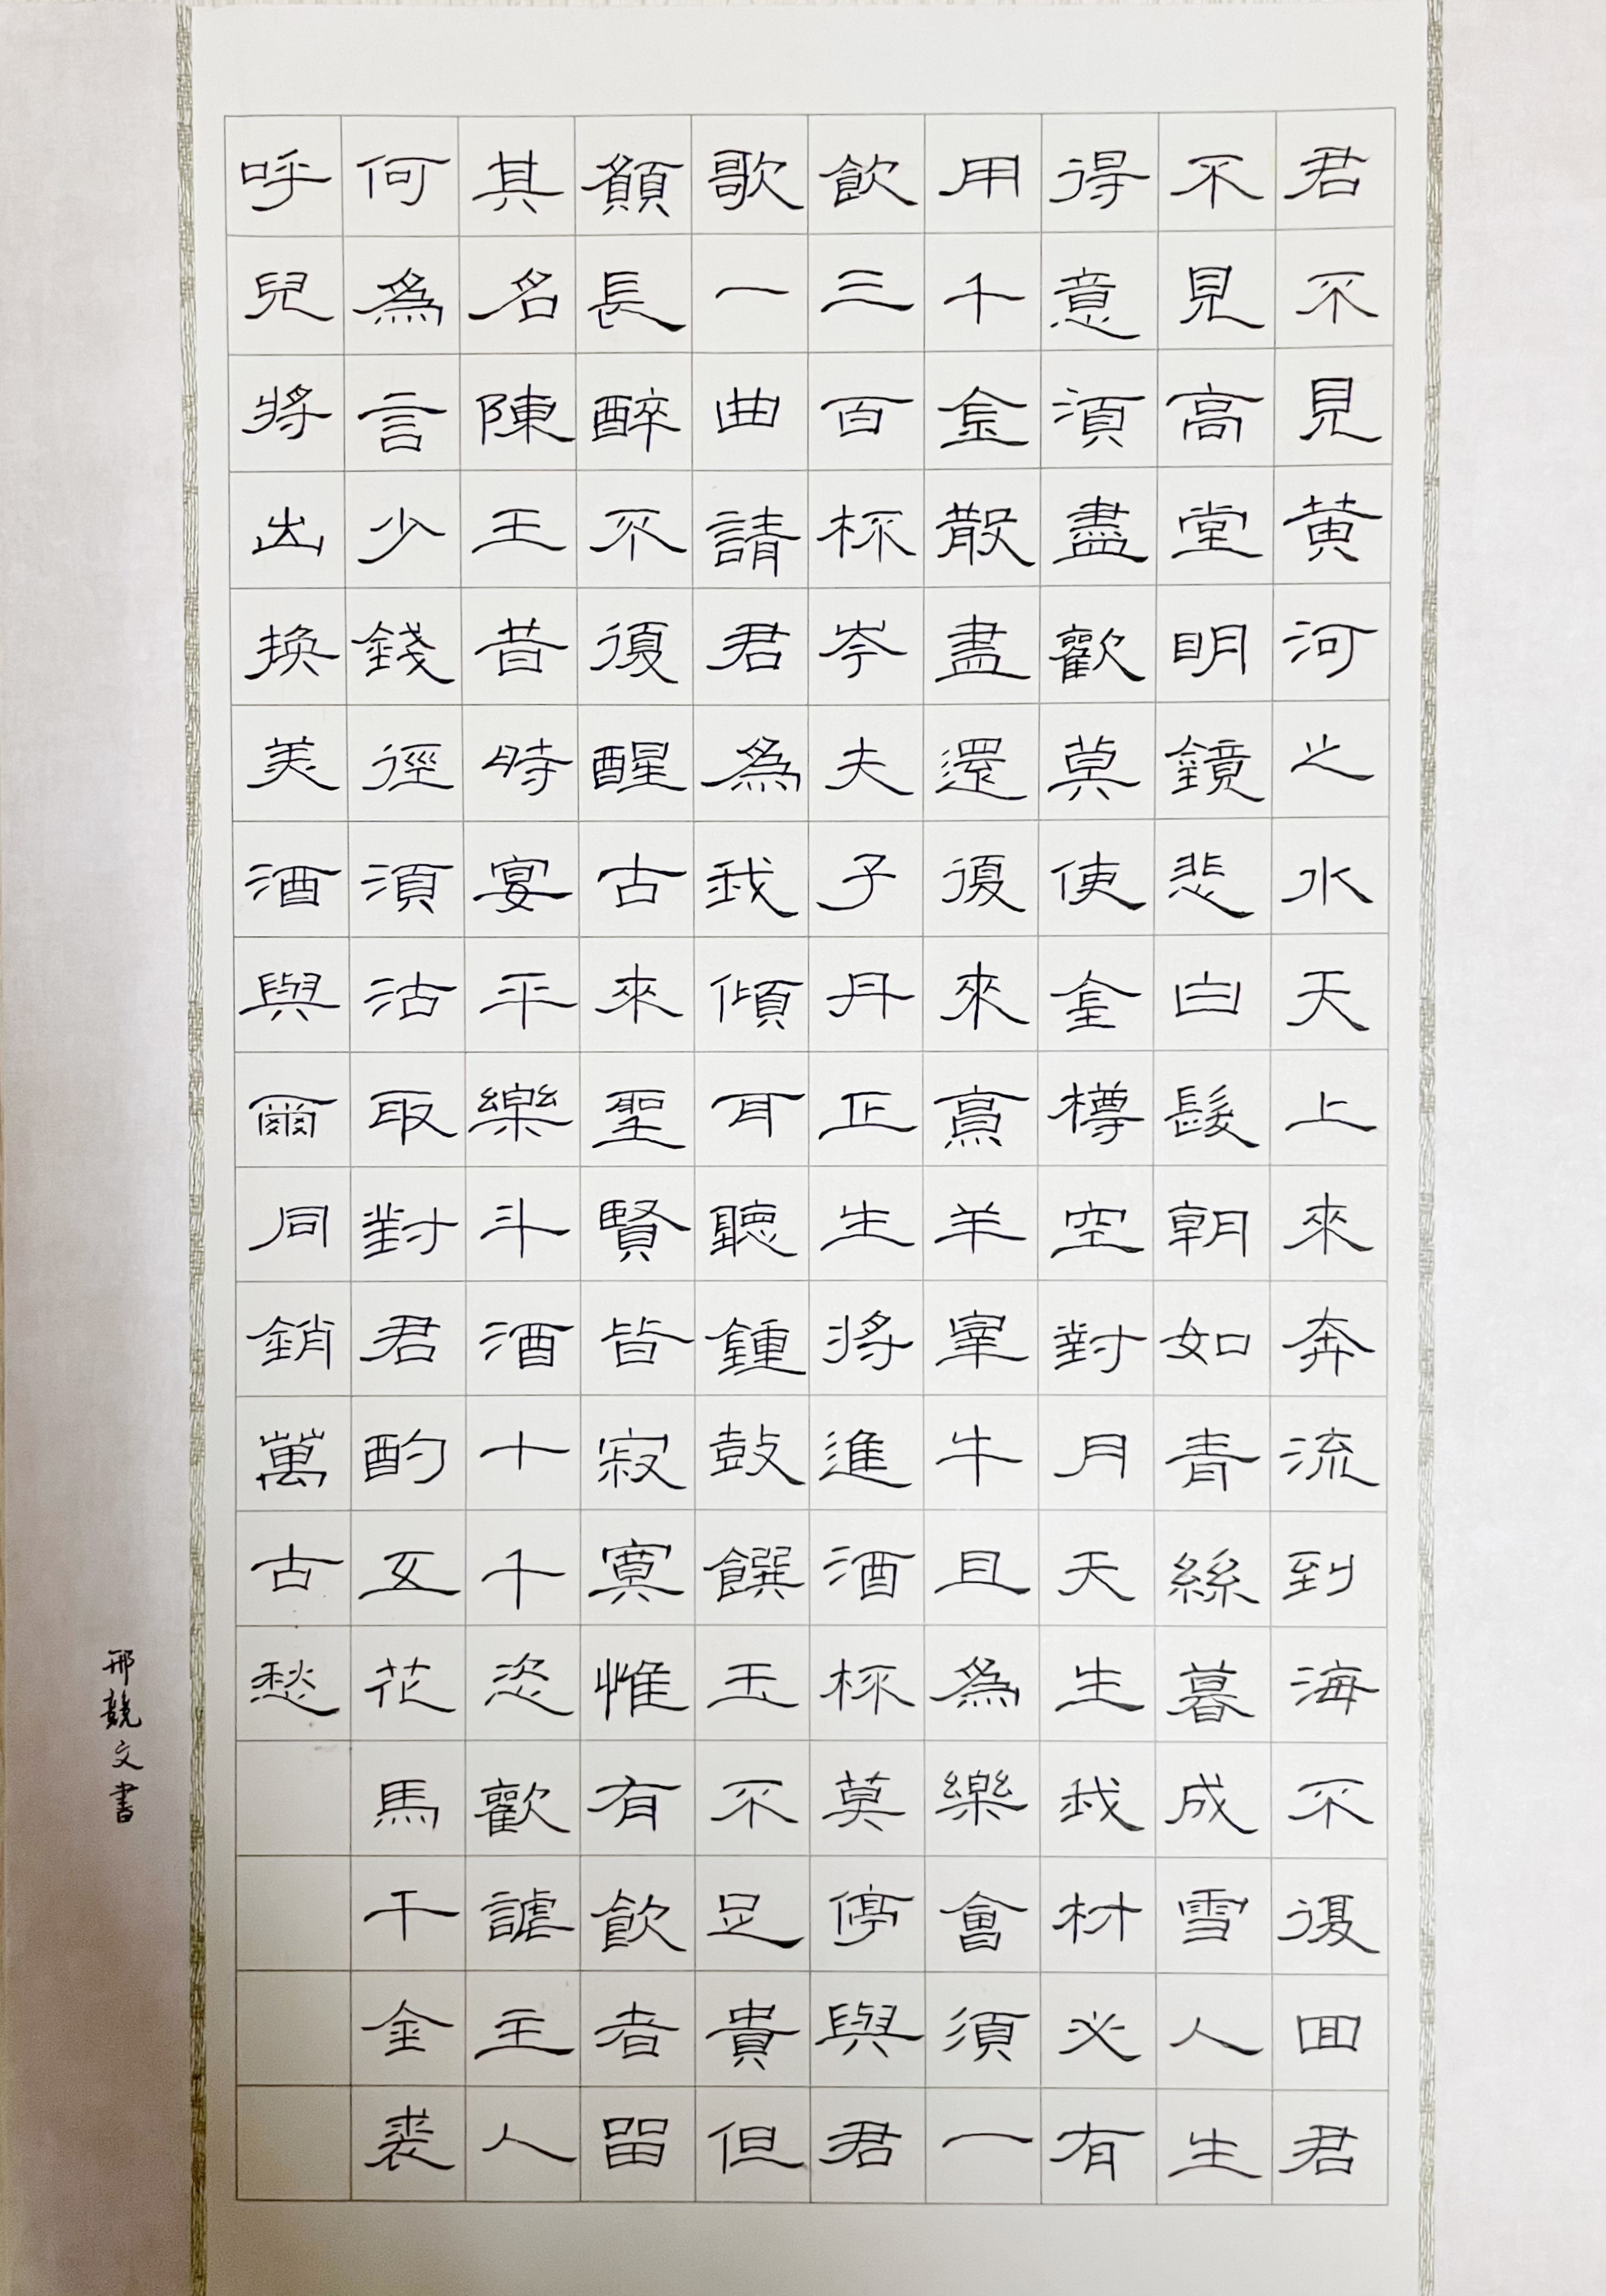 君不見黃河之水天上來奔流到海不復回君
不見高堂明鏡悲白髮朝如青絲暮成雪人生
得意須盡歡莫使金樽空對月天生我材必有
用千金散盡還復來烹羊宰牛且為樂會須一
飲三百杯岑夫子丹丘生將進酒杯莫停與君
歌一曲請君為我傾耳聽鍾鼓饌玉不足貴但
願長醉不復醒古來聖賢皆寂寞惟有飲者留
其名陳王昔時宴平樂斗酒十千恣歡謔主人
何為言少錢徑須沽取對君酌五花馬千金裘
呼兒將出換美酒與爾同銷萬古愁
邢競文書